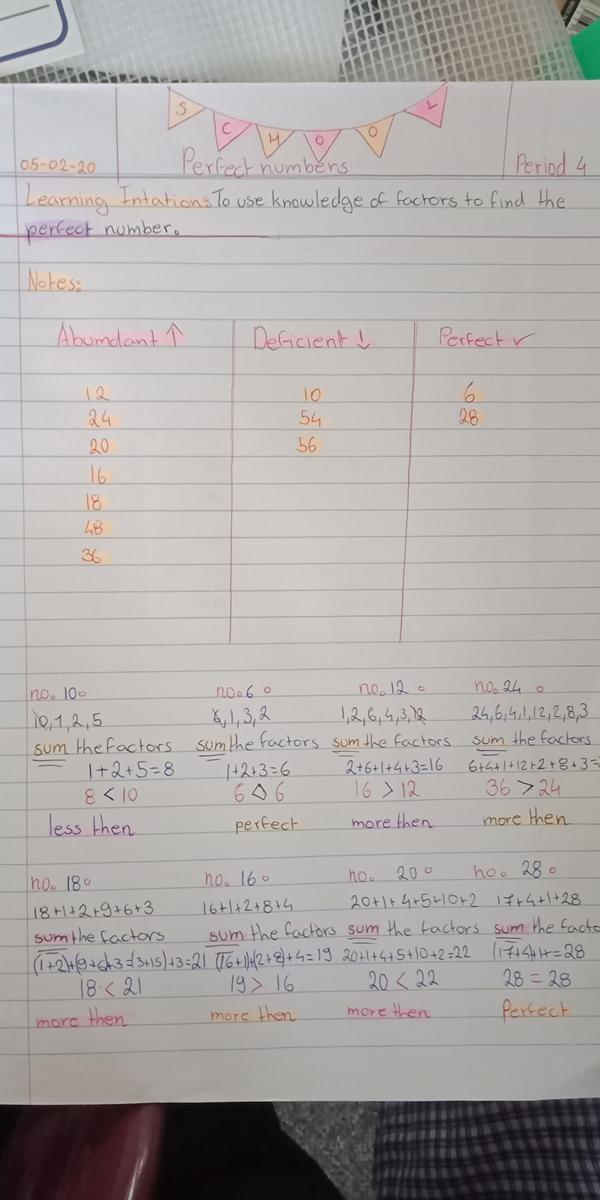 SCHOOL
05-02-20 Perfect numbers Period 4
Learning Intations: To use knowledge of factors to find the
perfect number.
Notes:
Abumdant ↑ Deficient ↓ Perfect ✓
12 10 6
24 54 28
20 56
16
18
48
36
no. 10 no. 6 no. 12 no. 24
10, 1, 2, 5 6, 1, 3, 2 1, 2, 6, 4, 3, 12 24, 6, 4, 1, 12, 2, 8, 3
sum the factors sum the factors sum the factors sum the factors
1+2+5=8 1+2+3=6 2+6+1+4+3=16 6+4+1+12+2+8+3=
8 < 10 6 6 16 > 12 36 > 24
less then perfect more then more then
no. 18 no. 16 no. 20 no. 28
18+1+2+9+6+3 16+1+2+8+4 20+1+4+5+10+2 17+4+1+28
sum the factors sum the factors sum the factors sum the facto
+3=21 +4=19 20+1+4+5+10+2=22 =28
18 < 21 19 > 16 20 < 22 28 = 28
more then more then more then Perfect